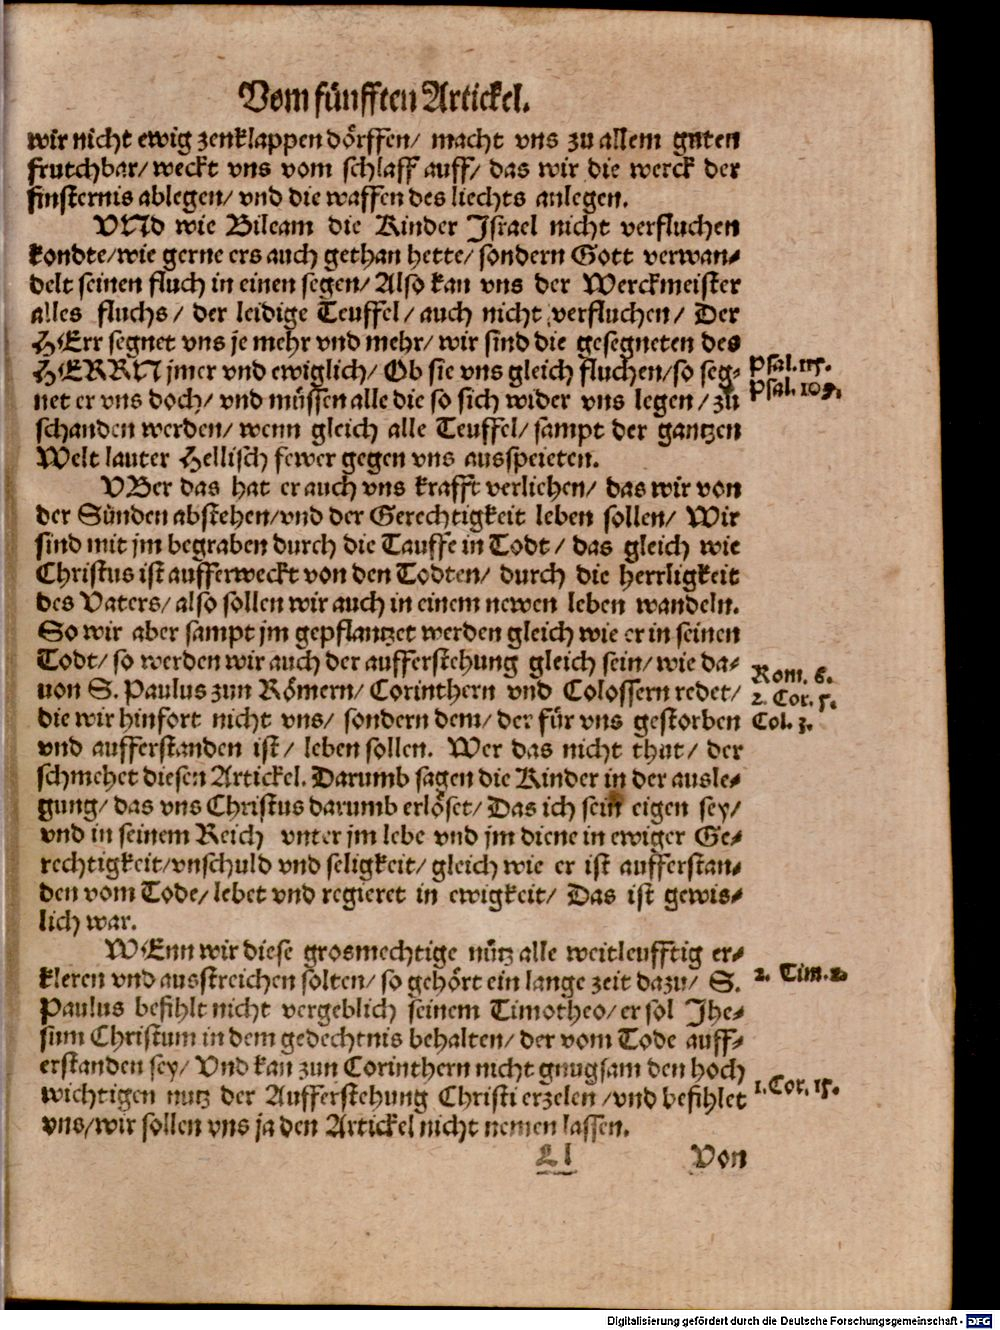 Vom fünfften Artickel.
wir nicht ewig zenklappen dörffen/ macht vns zu allem guten
frutchbar/ weckt vns vom schlaff auff/ das wir die werck der
finsternis ablegen/ vnd die waffen des liechts anlegen.
VNd wie Bileam die Kinder Israel nicht verfluchen
kondte/wie gerne ers auch gethan hette/ sondern Gott verwan-
delt seinen fluch in einen segen/ Also kan vns der Werckmeister
alles fluchs/ der leidige Teuffel/ auch nicht verfluchen/ Der
HErr segnet vns je mehr vnd mehr/ wir sind die gesegneten des
HERRN jmer vnd ewiglich/ Ob sie vns gleich fluchen/so seg-
Psal. 115.
net er vns doch/ vnd müssen alle die so sich wider vns legen/ zu
Psal. 109.
schanden werden/ wenn gleich alle Teuffel/ sampt der gantzen
Welt lauter Hellisch fewer gegen vns ausspeieten.
VBer das hat er auch vns krafft verliehen/ das wir von
der Sünden abstehen/vnd der Gerechtigkeit leben sollen/ Wir
sind mit jm begraben durch die Tauffe in Todt/ das gleich wie
Christus ist aufferweckt von den Todten/ durch die herrligkeit
des Vaters/ also sollen wir auch in einem newen leben wandeln.
So wir aber sampt jm gepflantzet werden gleich wie er in seinen
Todt/ so werden wir auch der aufferstehung gleich sein/ wie da-
Rom. 6.
uon S. Paulus zun Römern/ Corinthern vnd Colossern redet/
2. Cor. 5.
die wir hinfort nicht vns/ sondern dem/ der für vns gestorben
Col. 3.
vnd aufferstanden ist/ leben sollen. Wer das nicht thut/ der
schmehet diesen Artickel. Darumb sagen die Kinder in der ausle-
gung/ das vns Christus darumb erlöset/ Das ich sein eigen sey/
vnd in seinem Reich vnter jm lebe vnd jm diene in ewiger Ge-
rechtigkeit/vnschuld vnd seligkeit/ gleich wie er ist aufferstan-
den vom Tode/ lebet vnd regieret in ewigkeit/ Das ist gewis-
lich war.
WEnn wir diese grosmechtige nütz alle weitleufftig er-
kleren vnd ausstreichen solten/ so gehört ein lange zeit dazu/ S.
2. Tim. 2
Paulus befihlt nicht vergeblich seinem Timotheo/ er sol Jhe-
sum Christum in dem gedechtnis behalten/ der vom Tode auff-
erstanden sey/ Vnd kan zun Corinthern nicht gnugsam den hoch
wichtigen nutz der Aufferstehung Christi erzelen/vnd befihlet
1. Cor. 15.
vns/wir sollen vns ja den Artickel nicht nemen lassen.
Ll Von
Digitalisierung gefördert durch die Deutsche Forschungsgemeinschaft - DFG